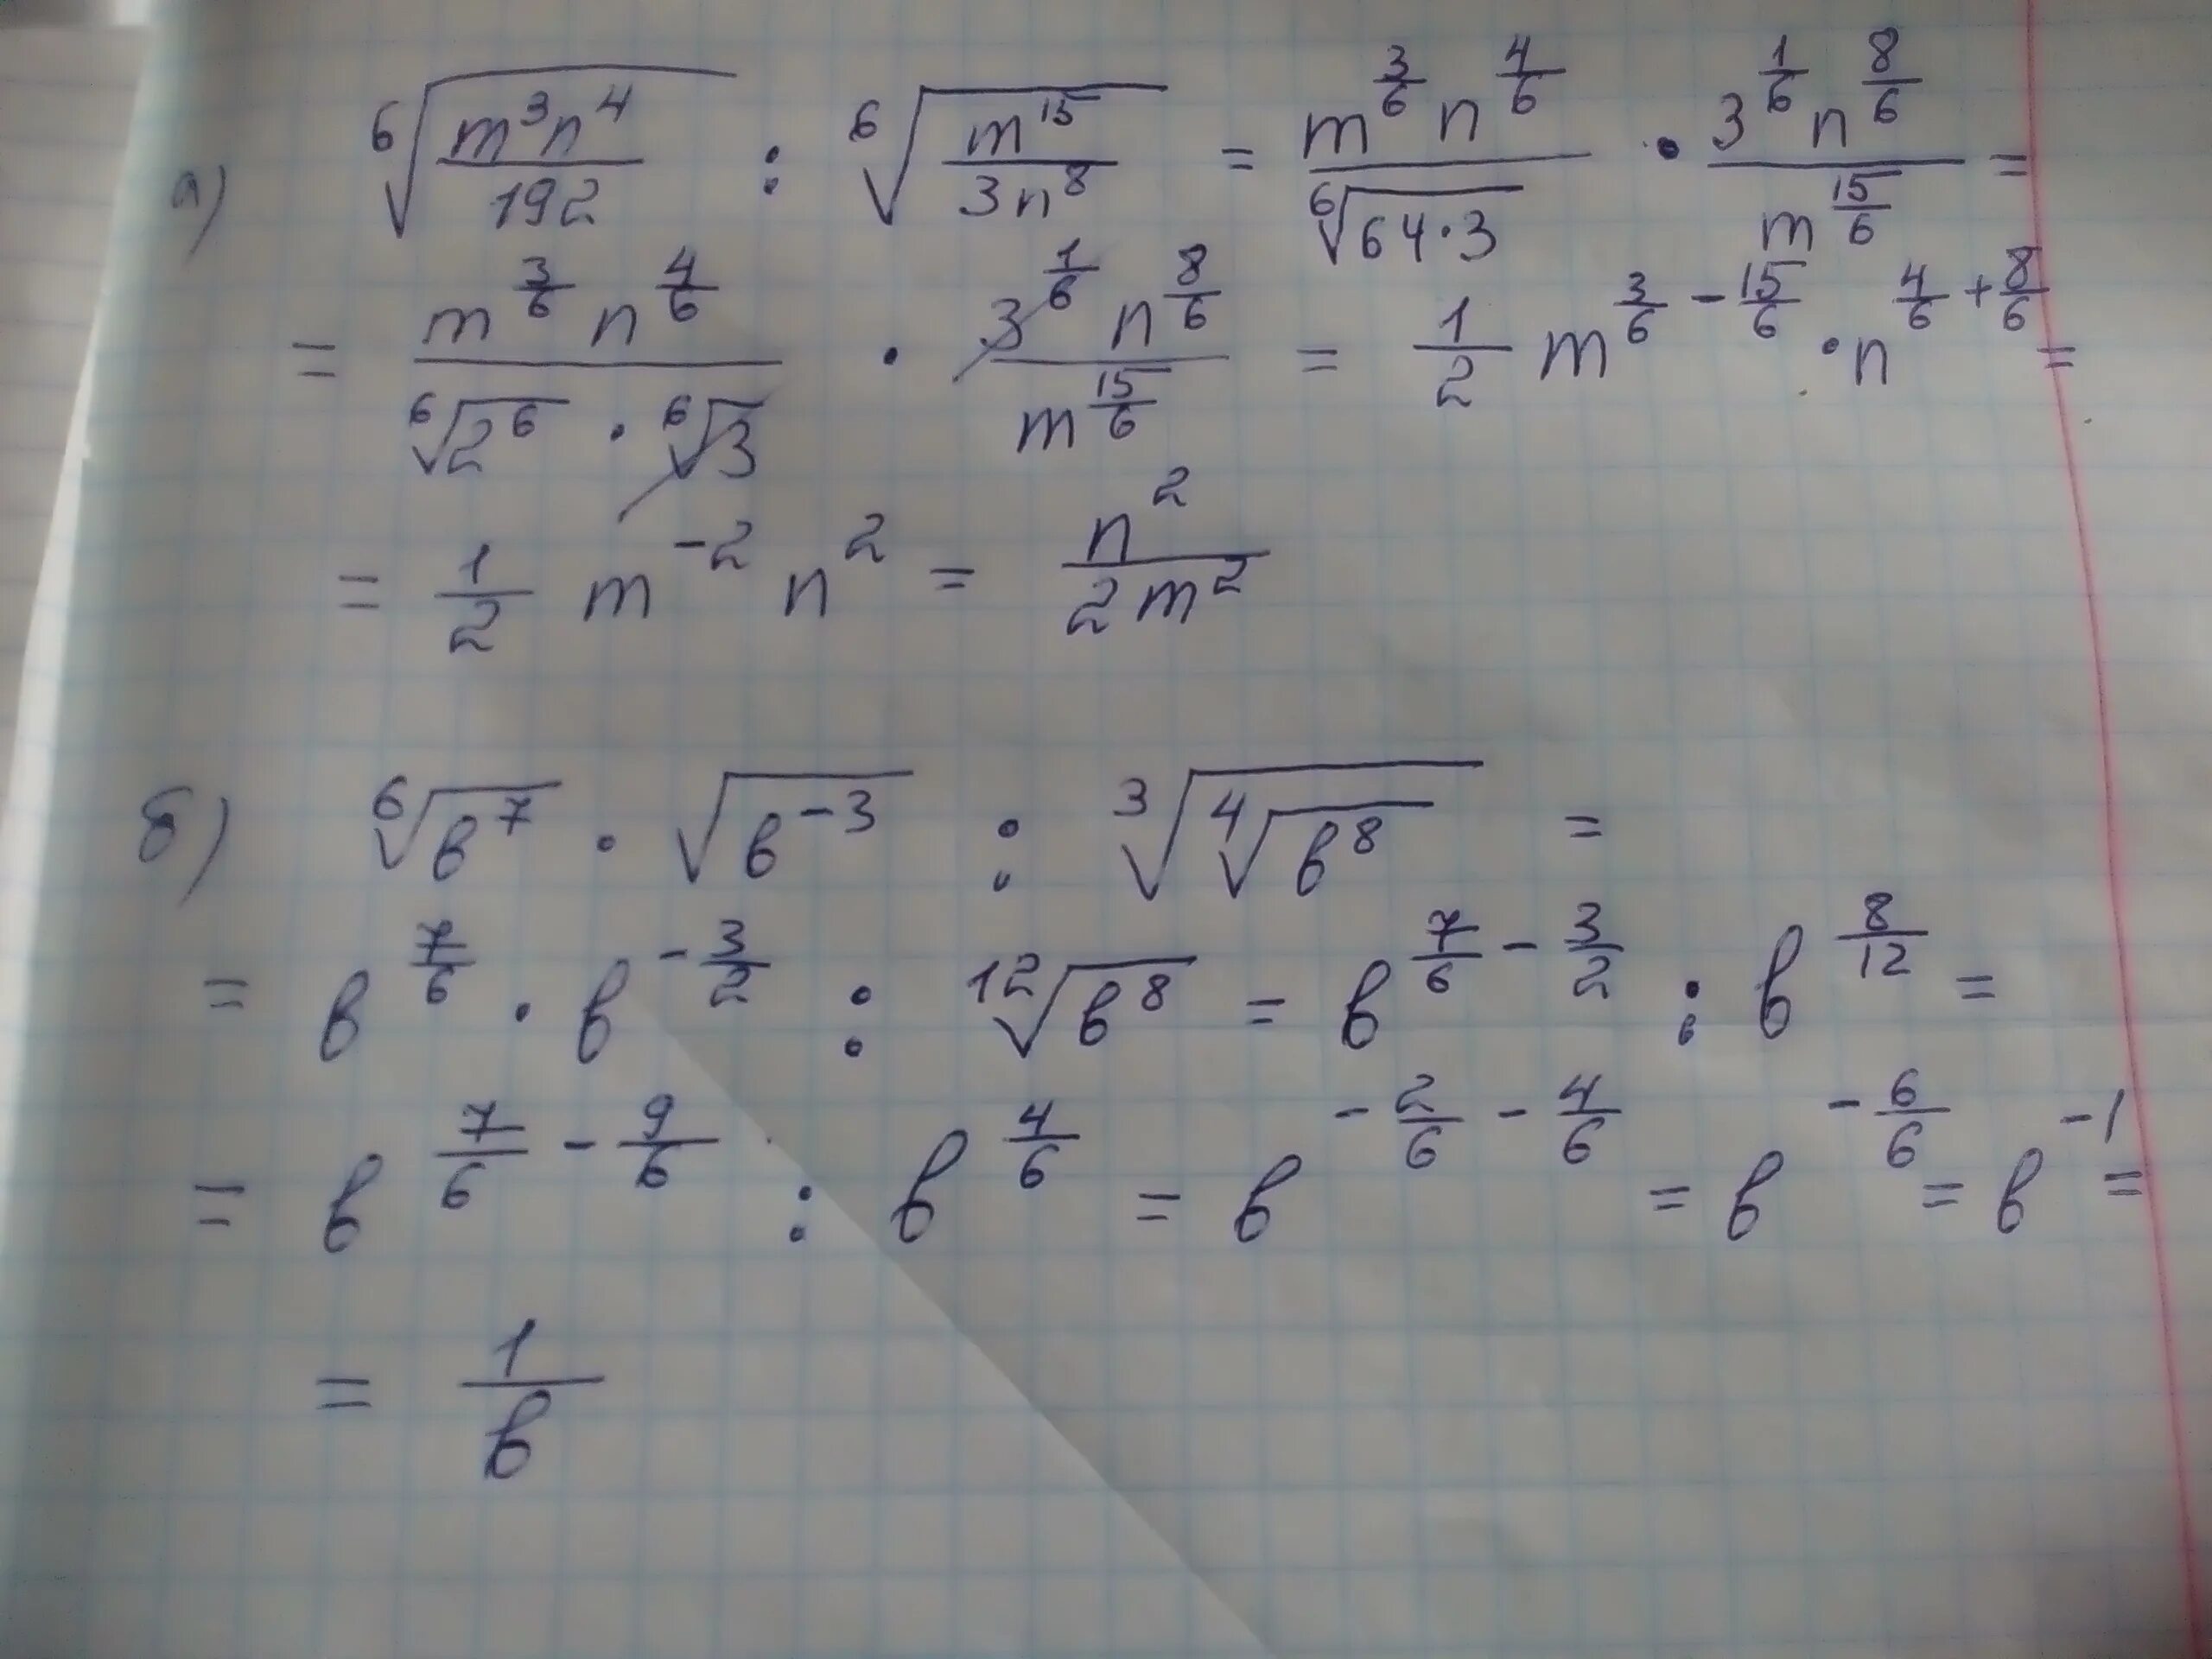 а) \sqrt[6]{\frac{m^3n^4}{192}} : \sqrt[6]{\frac{m^{15}}{3n^8}} = \frac{m^{\frac{3}{6}} n^{\frac{4}{6}}}{\sqrt[6]{64 \cdot 3}} \cdot \frac{3^{\frac{1}{6}} n^{\frac{8}{6}}}{m^{\frac{15}{6}}} =
= \frac{m^{\frac{3}{6}} n^{\frac{4}{6}}}{\sqrt[6]{2^6} \cdot \sqrt[6]{3}} \cdot \frac{3^{\frac{1}{6}} n^{\frac{8}{6}}}{m^{\frac{15}{6}}} = \frac{1}{2} m^{\frac{3}{6} - \frac{15}{6}} \cdot n^{\frac{4}{6} + \frac{8}{6}} =
= \frac{1}{2} m^{-2} n^2 = \frac{n^2}{2m^2}
б) \sqrt[6]{в^7} \cdot \sqrt{в^{-3}} : \sqrt[3]{\sqrt[4]{в^8}} =
= в^{\frac{7}{6}} \cdot в^{-\frac{3}{2}} : \sqrt[12]{в^8} = в^{\frac{7}{6} - \frac{3}{2}} : в^{\frac{8}{12}} =
= в^{\frac{7}{6} - \frac{9}{6}} : в^{\frac{4}{6}} = в^{-\frac{2}{6} - \frac{4}{6}} = в^{-\frac{6}{6}} = в^{-1} =
= \frac{1}{в}